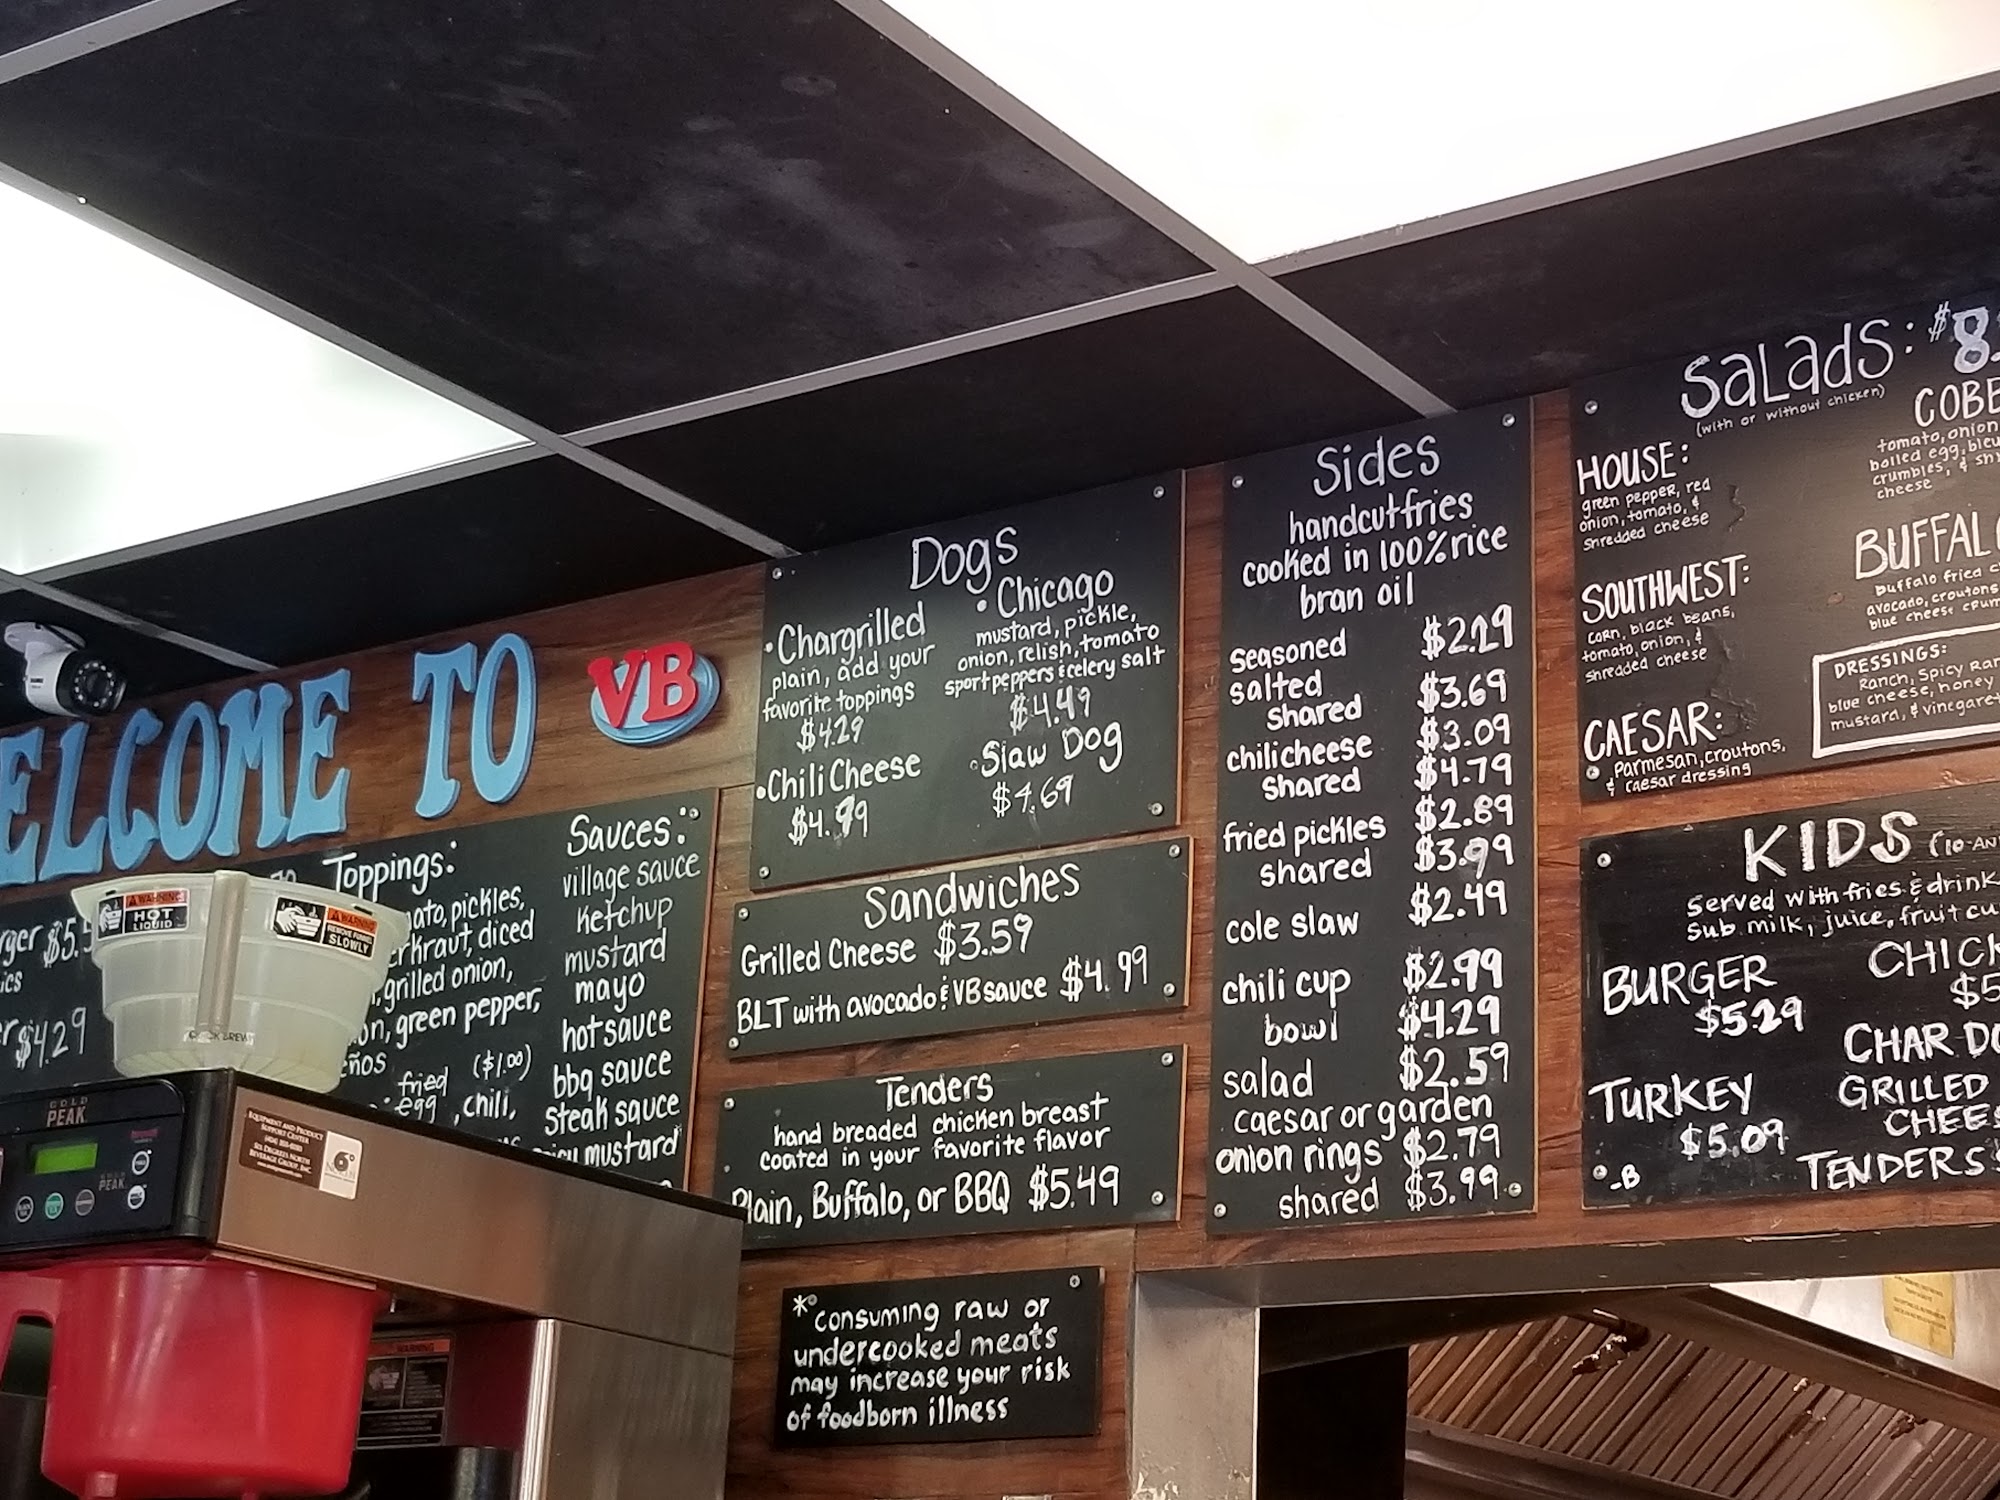 WELCOME TO VB
Toppings:
pickles,
diced
grilled onion,
green pepper,
($1.00)
fried
egg, chili,
Sauces:
village sauce
ketchup
mustard
mayo
hot sauce
bbq sauce
steak sauce
mustard
$4.29
WARNING
HOT
LIQUID
WARNING
REMOVE FUNNEL
SLOWLY
GOLD
PEAK
GOLD
PEAK
EQUIPMENT AND PRODUCT
SUPPORT CENTER
SIX DEGREES NORTH
BEVERAGE GROUP, INC.
6°
NORTH
WARNING
Dogs
•Chargrilled
plain, add your
favorite toppings
$4.29
•Chili Cheese
$4.99
•Chicago
mustard, pickle,
onion, relish, tomato
sport peppers & celery salt
$4.49
•Slaw Dog
$4.69
Sandwiches
Grilled Cheese $3.59
BLT with avocado & VB sauce $4.99
Tenders
hand breaded chicken breast
coated in your favorite flavor
Plain, Buffalo, or BBQ $5.49
*consuming raw or
undercooked meats
may increase your risk
of foodborn illness
Sides
handcut fries
cooked in 100% rice
bran oil
seasoned $2.29
salted
shared $3.69
chili cheese $3.09
shared $4.79
fried pickles $2.89
shared $3.99
cole slaw $2.49
chili cup $2.99
bowl $4.29
salad $2.59
caesar or garden
onion rings $2.79
shared $3.99
Salads: $8
(with or without chicken)
HOUSE:
green pepper, red
onion, tomato, &
shredded cheese
SOUTHWEST:
corn, black beans,
tomato, onion, &
shredded cheese
CAESAR:
parmesan, croutons,
& caesar dressing
COBB
tomato, onion
boiled egg, bleu
crumbles, &
cheese
BUFFALO
buffalo fried
avocado, croutons
blue cheese
DRESSINGS:
Ranch, Spicy
blue cheese, honey
mustard, &
KIDS
Served with fries & drink
Sub milk, juice, fruit
BURGER
$5.29
TURKEY
$5.09
-B
CHAR
GRILLED
TENDERS